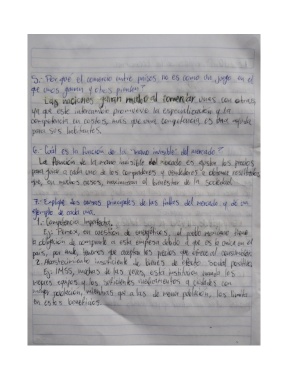 5.- Por qué el comercio entre países no es como un juego en el
que unos ganan y otros pierden?
Las naciones ganan mucho al comerciar unas con otras,
ya que este intercambio promueve la especialización y la
competencia en costos, más que una competencia, es una ayuda
para sus habitantes.
6.- Cuál es la función de la "mano invisible" del mercado?
La función de la mano invisible del mercado es ajustar los precios
para guiar a cada uno de los compradores y vendedores a obtener resultados
que, en muchos casos, maximizan el bienestar de la sociedad.
7.- Explique dos causas principales de las fallas del mercado y dé un
ejemplo de cada una.
1. Competencia Imperfecta.
Ej: Pemex, en cuestión de energéticos, el pueblo mexicano tiene
la obligación de comprarle a esta empresa debido a que es la única en el
país, por ende, tenemos que aceptar los precios que ofrece al consumidor.
2. Abastecimiento insuficiente de bienes de efecto social positivo.
Ej: IMSS, muchas de las veces, esta institución manda los
mejores equipos y los suficientes medicamentos a ciudades con
mayor población, mientras que a las de menor población, les limita
en estos beneficios.